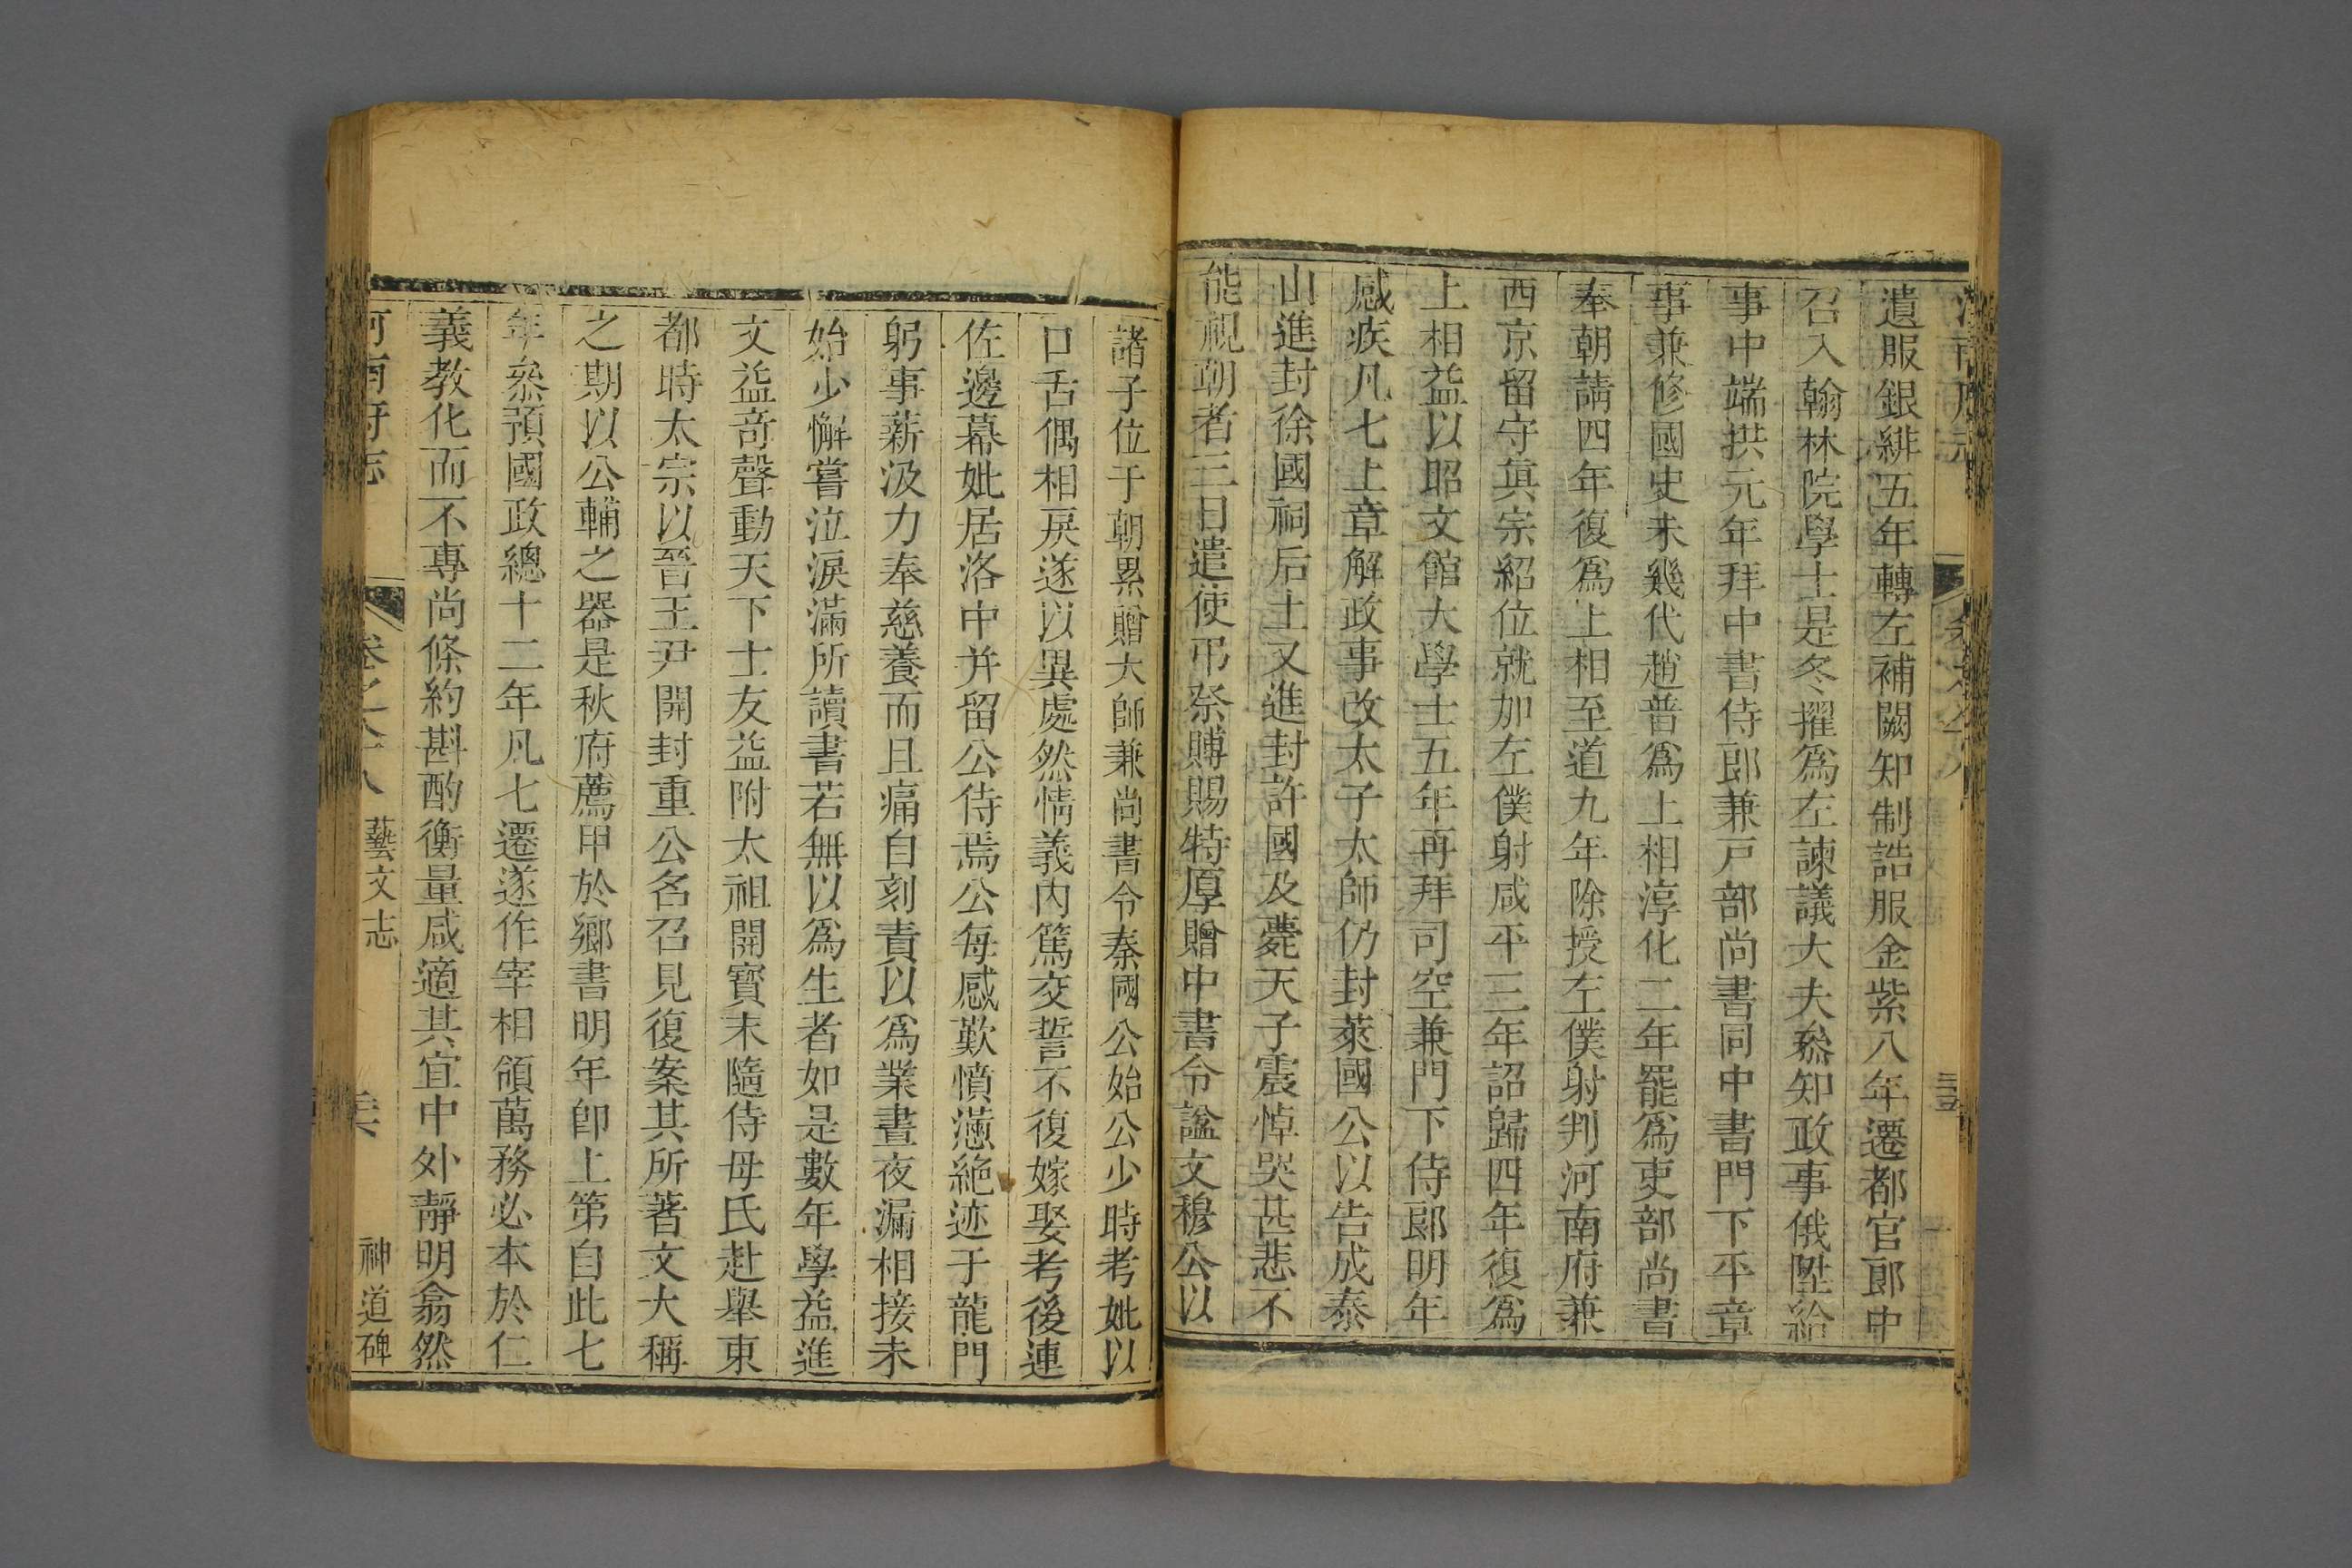 遺服銀緋五年轉左補闕知制誥服金紫八年遷都官郎中
召入翰林院學士是冬擢爲左諫議大夫叅知政事俄陞給
事中端拱元年拜中書侍郎兼戸部尚書同中書門下平章
事兼修國史未幾代趙普爲上相淳化二年罷爲吏部尚書
奉朝請四年復爲上相至道九年除授左僕射判河南府兼
西京留守真宗紹位就加左僕射咸平三年詔歸四年復爲
上相益以昭文館大學士五年再拜司空兼門下侍郎明年
感疾凡七上章解政事改太子太師仍封萊國公以告成泰
山進封徐國祠后土又進封許國及薨天子震悼哭甚悲不
能視朝者三日遣使弔祭賻賜特厚贈中書令諡文穆公以
諸子位于朝累贈大師兼尚書令秦國公始公少時考妣以
口舌偶相戾遂以異處然情義内篤交誓不復嫁娶考後連
佐邊幕妣居洛中并留公侍焉公每感歎憤懣絶迹于龍門
躬事薪汲力奉慈養而且痛自刻責以爲業晝夜漏相接未
始少懈嘗泣淚滿所讀書若無以爲生者如是數年學益進
文益竒聲動天下士友益附太祖開寳末隨侍母氏赴舉東
都時太宗以晉王尹開封重公名召見復案其所著文大稱
之期以公輔之器是秋府薦甲於鄉書明年卽上第自此七
年叅預國政總十二年凡七遷遂作宰相領萬務必本於仁
義教化而不專尚條約斟酌衡量咸適其宜中外靜明翕然
河南府志 卷之八十八 藝文志 神道碑